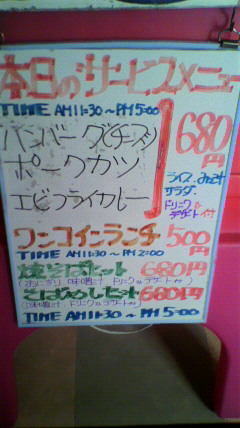 本日のサービスメニュー
TIME AM11:30～PM5:00
ハンバーグ(チーズ)
ポークカツ
エビフライカレー
680円
ライス、みそ汁
サラダ、
ドリンク
デザート付
ワンコインランチ 500円
TIME AM11:30～PM2:00
焼そばセット 680円
(おにぎり、味噌汁、ドリンクorデザート付)
そばめしセット 680円
(味噌汁、ドリンクorデザート付)
TIME AM11:30～PM5:00